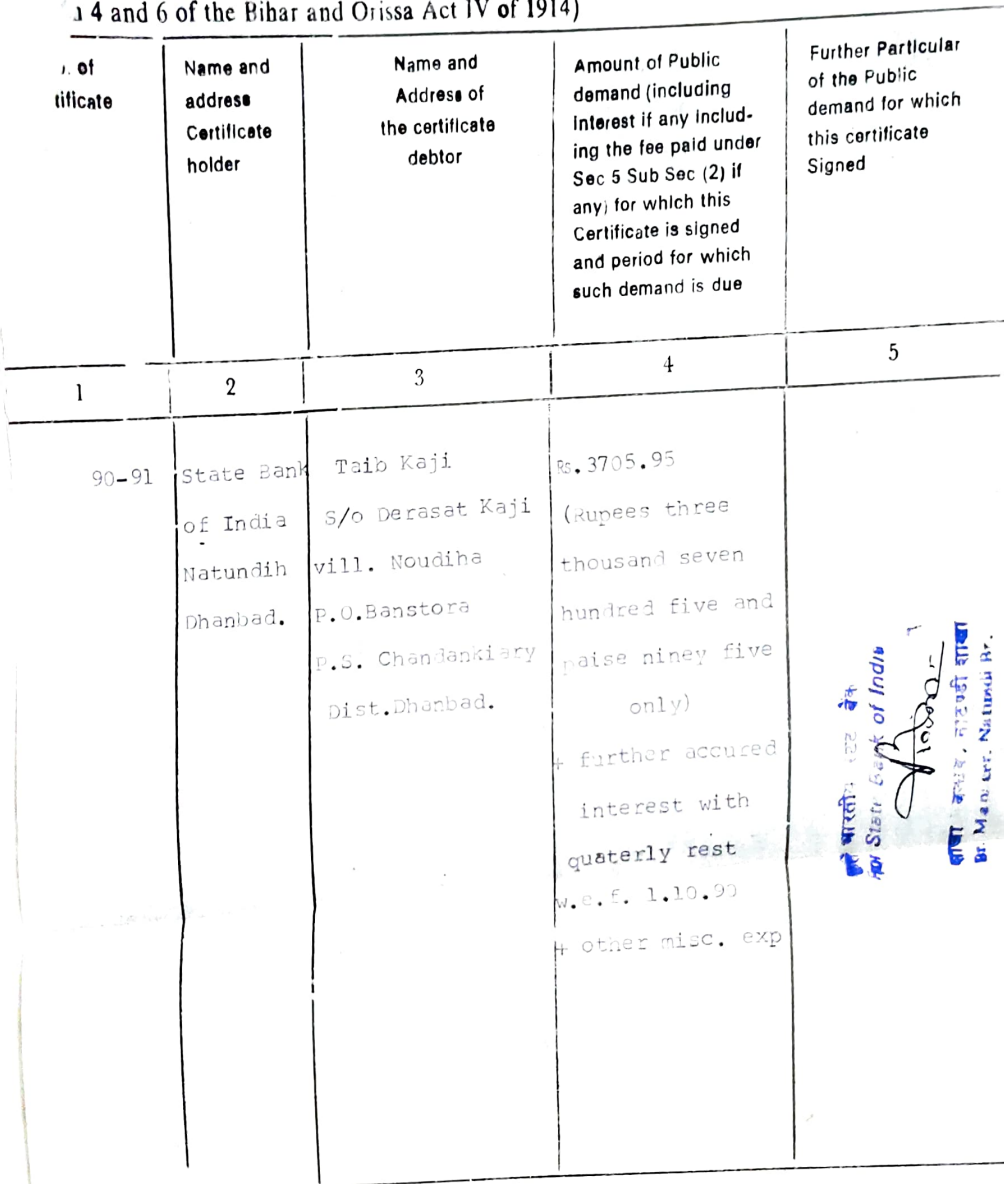 4 and 6 of the Bihar and Orissa Act IV of 1914)
. of
tificate
Name and
address
Certificate
holder
Name and
Address of
the certificate
debtor
Amount of Public
demand (including
Interest if any includ-
ing the fee paid under
Sec 5 Sub Sec (2) if
any) for which this
Certificate is signed
and period for which
such demand is due
Further Particular
of the Public
demand for which
this certificate
Signed
1
2
3
4
5
90-91
State Bank
of India
Natundih
Dhanbad.
Taib Kaji
S/o Derasat Kaji
vill. Noudiha
P.O.Banstora
P.S. Chandankiary
Dist.Dhanbad.
Rs.3705.95
(Rupees three
thousand seven
hundred five and
paise niney five
only)
+ further accured
interest with
quaterly rest
w.e.f. 1.10.90
+ other misc. exp
State Bank of India
शाखा
Br.